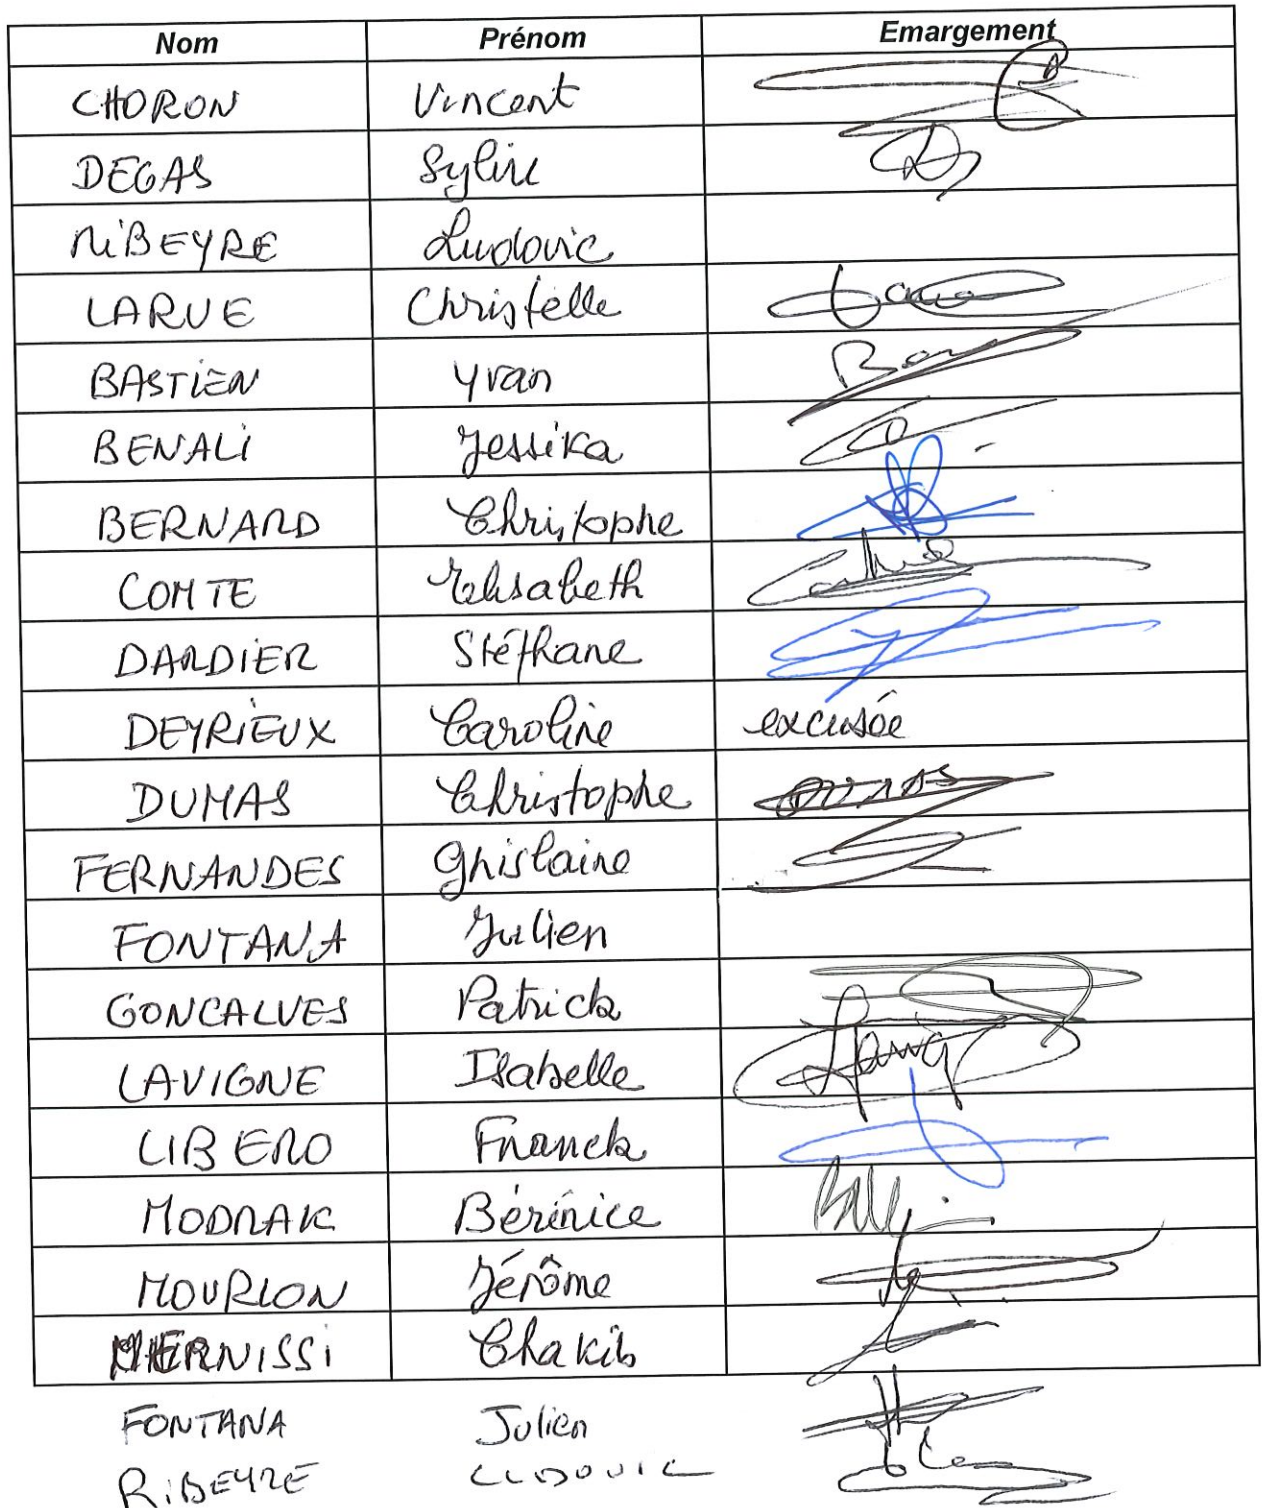 Nom Prénom Emargement
CHORON Vincent
DEGAS Sylvie
RIBEYRE Ludovic
LARUE Christelle
BASTIEN Yvan
BENALI Jessika
BERNARD Christophe
COMTE Elisabeth
DARDIER Stéphane
DEYRIEUX Caroline excusée
DUMAS Christophe DUMAS
FERNANDES Ghislaine
FONTANA Julien
GONCALVES Patrick
LAVIGNE Isabelle
LIBERO Franck
MODRAK Bérénice
MOURLON Jérôme
MERNISSI Chakib
FONTANA Julien
RiBEYRE LUDOVIC